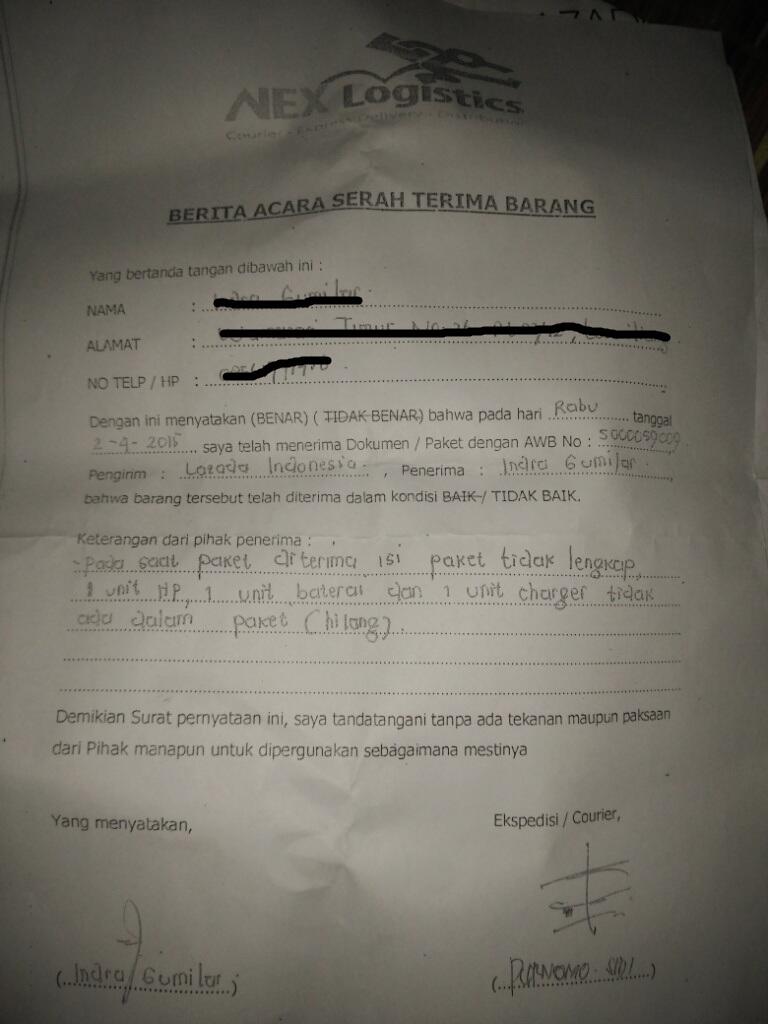 NEX Logistics
Courier - Express Delivery - Distribution
BERITA ACARA SERAH TERIMA BARANG
Yang bertanda tangan dibawah ini :
NAMA :
ALAMAT :
NO TELP / HP :
Dengan ini menyatakan (BENAR) ( TIDAK BENAR) bahwa pada hari Rabu tanggal
2-4-2015 saya telah menerima Dokumen / Paket dengan AWB No :
Pengirim : Lazada Indonesia , Penerima : Indra Gumilar
bahwa barang tersebut telah diterima dalam kondisi BAIK / TIDAK BAIK.
Keterangan dari pihak penerima :
- Pada saat paket diterima isi paket tidak lengkap,
1 unit HP, 1 unit baterai dan 1 unit charger tidak
ada dalam paket (hilang).
Demikian Surat pernyataan ini, saya tandatangani tanpa ada tekanan maupun paksaan
dari Pihak manapun untuk dipergunakan sebagaimana mestinya
Yang menyatakan,
Ekspedisi / Courier,
(Indra Gumilar)
(PURNOMO SIDI)